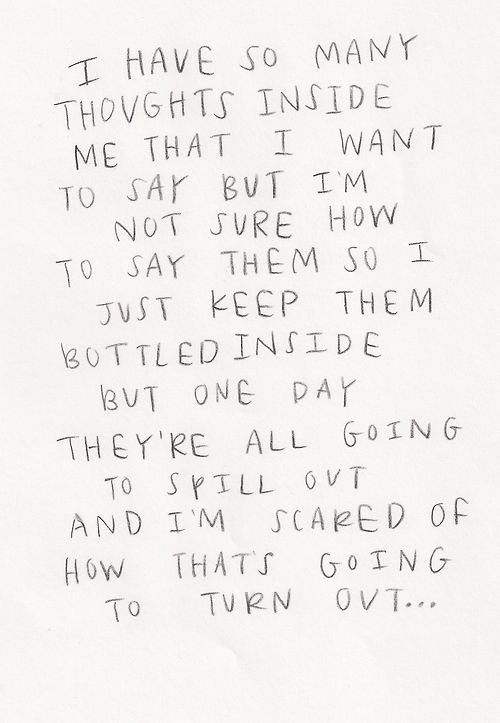 I HAVE SO MANY
THOUGHTS INSIDE
ME THAT I WANT
TO SAY BUT I'M
NOT SURE HOW
TO SAY THEM SO I
JUST KEEP THEM
BOTTLED INSIDE
BUT ONE DAY
THEY'RE ALL GOING
TO SPILL OUT
AND I'M SCARED OF
HOW THAT'S GOING
TO TURN OUT...